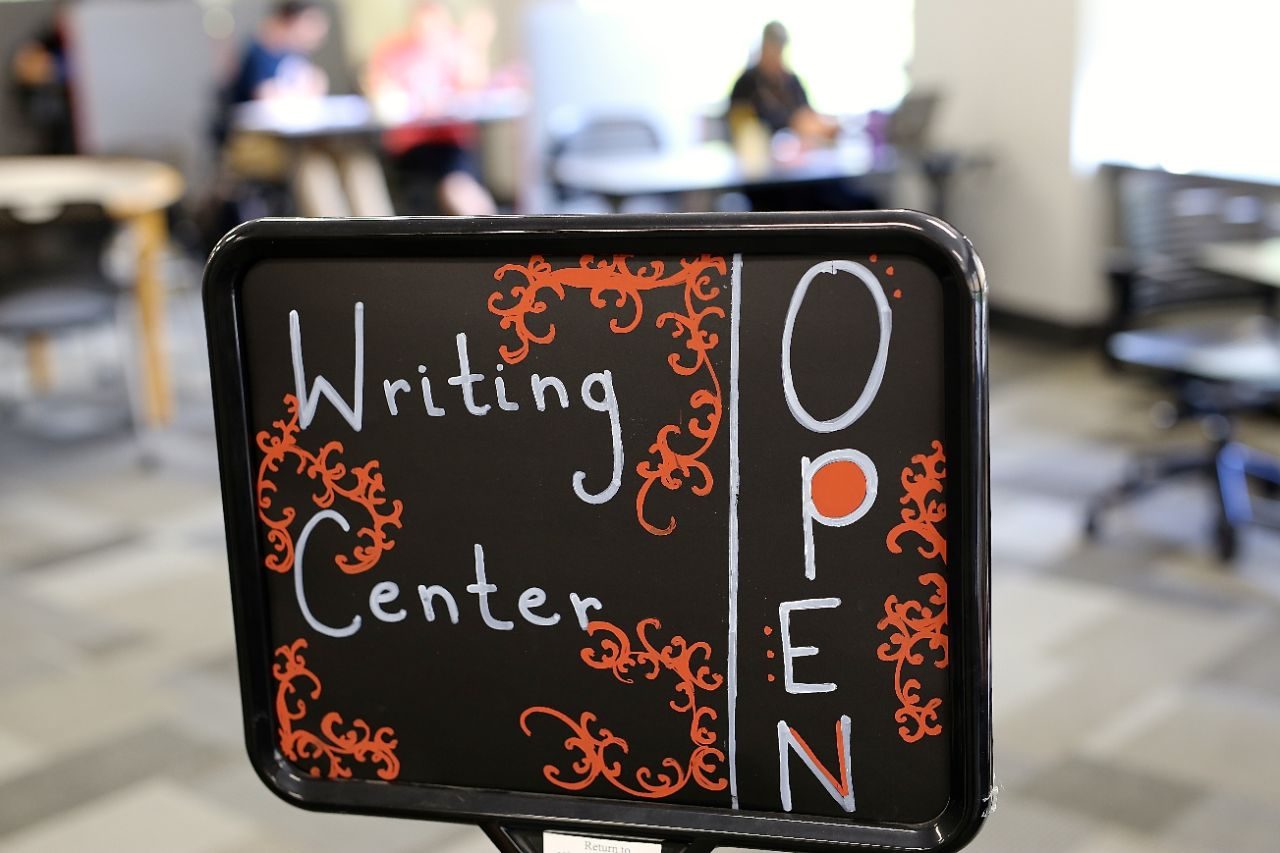 Writing
Center
OPEN
Return to